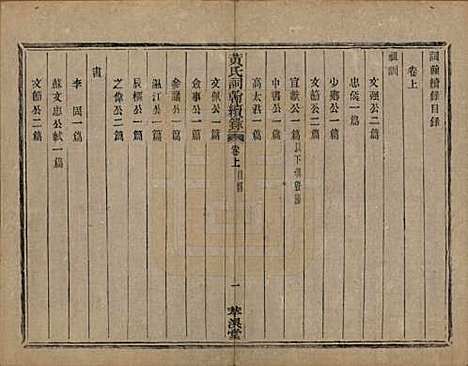 詞翰續錄目錄
卷上
祖訓
文強公二篇
忠儀一篇
少卿公一篇
文節公一篇
宜獻公一篇
中書公一篇
高太君一篇
黃氏詞翰續錄
卷上
目錄
一
萃渙堂
文叙公一篇
僉事公一篇
參議公一篇
溫江公一篇
辰樞公一篇
之偉公一篇
書
李固一篇
蘇文忠公軾一篇
文節公二篇